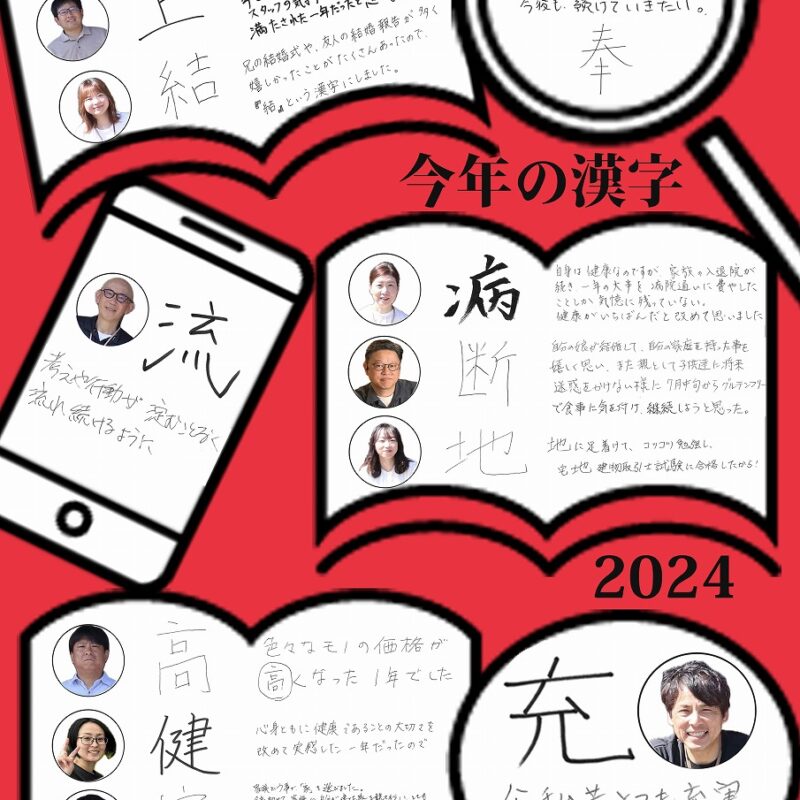 上
結
満たされた一年だったと
兄の結婚式や、友人の結婚報告が多く
嬉しかったことがたくさんあったので、
『結』という漢字にしました。
今後も、続けていきたい。
奉
今年の漢字
流
考えや行動が淀むことなく
流れ続けるように
病
自身は健康なのですが、家族の入退院が
続き、一年の大事を病院通いに費やした
ことしか記憶に残っていない。
健康がいちばんだと改めて思いました
断
自分の娘が結婚して、自分の家庭を持つ事を
嬉しく思い、また親として子供達に将来
迷惑をかけない様に7月中旬からグルテンフリー
で食事に気を付け、継続しようと思った。
地
地に足着けて、コツコツ勉強し、
宅地建物取引士試験に合格したから!
2024
高
色々なモノの価格が
高くなった1年でした
健
心身ともに健康であることの大切さを
改めて実感した一年だったので
充